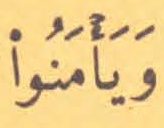 وَيَأۡمَنُوا۟